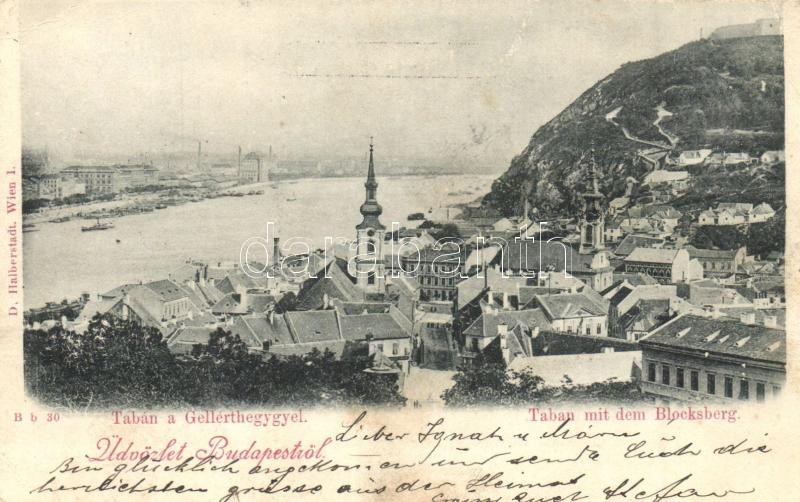 D. Halberstadt, Wien I.
darabanth
B b 30
Tabán a Gellérthegygyel.
Taban mit dem Blocksberg.
Üdvözlet Budapestről.
Liber Ignatz u
Bin glücklich angekommen und sende Euch die
herzlichsten Grüsse aus der Heimat
Euch Stefan